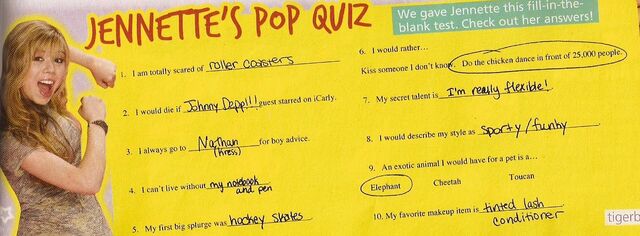 JENNETTE'S POP QUIZ
We gave Jennette this fill-in-the-
blank test. Check out her answers!
1. I am totally scared of roller coasters
2. I would die if Johnny Depp!!! guest starred on iCarly.
3. I always go to Nathan (Kress) for boy advice.
4. I can't live without my notebook and pen
5. My first big splurge was hockey skates
6. I would rather...
Kiss someone I don't know. Do the chicken dance in front of 25,000 people.
7. My secret talent is I'm really flexible!
8. I would describe my style as sporty/funky
9. An exotic animal I would have for a pet is a...
Elephant Cheetah Toucan
10. My favorite makeup item is tinted lash conditioner
tigerb